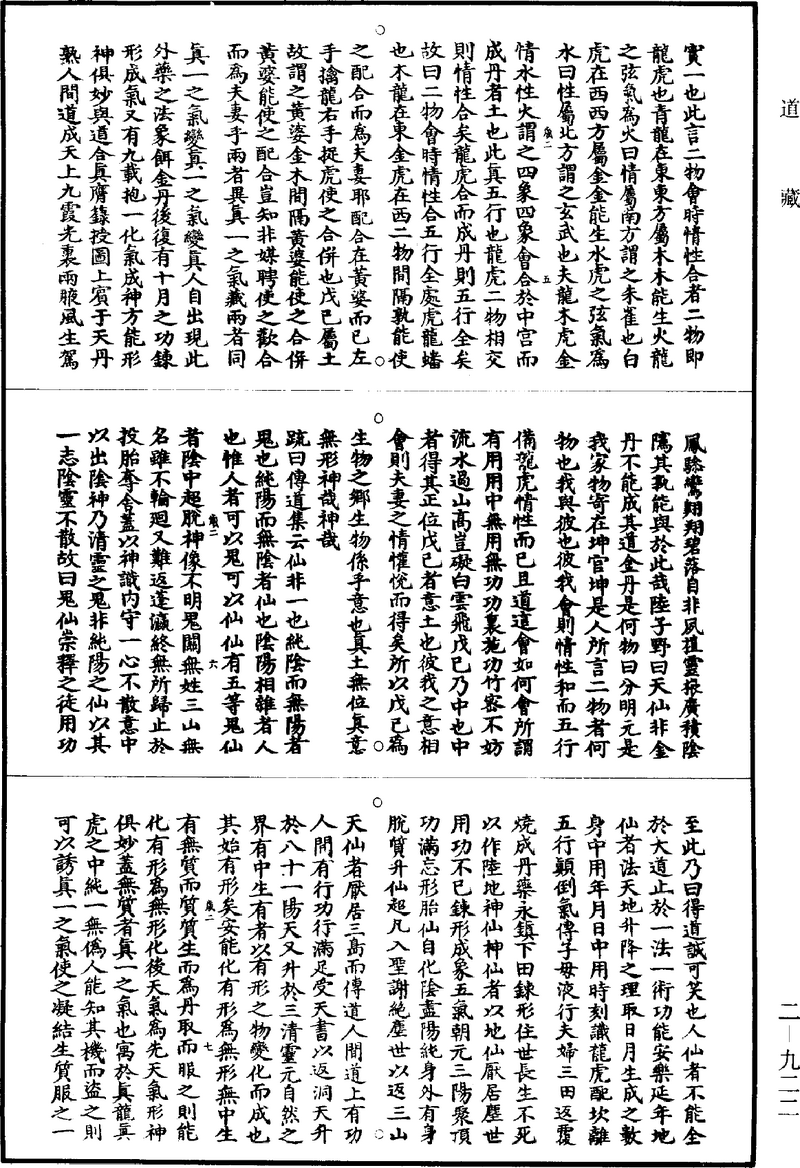 道藏
實一也此言二物會時情性合者二物即
龍虎也青龍在東東方屬木木能生火龍
之弦氣為火曰情屬南方謂之朱雀也白
虎在西西方屬金金能生水虎之弦氣為
水曰性屬北方謂之玄武也夫龍木虎金
情水性火謂之四象四象會合於中宮而
成丹者土也此真五行也龍虎二物相交
則情性合矣龍虎合而成丹則五行全矣
故曰二物會時情性合五行全處虎龍蟠
也木龍在東金虎在西二物間隔孰能使
之配合而為夫妻耶配合在黃婆而已左
手擒龍右手捉虎使之合併也戊己屬土
故謂之黃婆金木間隔黃婆能使之合併
黃婆能使之配合豈知非媒聘使之歡合
而為夫妻乎兩者異真一之氣藏兩者同
真一之氣變真一之氣變真人自出現此
外藥之法象餌金丹後復有十月之功鍊
形成氣又有九載抱一化氣成神方能形
神俱妙與道合真膺籙授圖上賓于天丹
熟人間道成天上九霞光裏兩腋風生駕
鳳驂鸞翱翔碧落自非夙植靈根廣積陰
隲其孰能與於此哉陸子野曰天仙非金
丹不能成其道金丹是何物曰分明元是
我家物寄在坤宮坤是人所言二物者何
物也我與彼也彼我會則情性和而五行
備龍虎情性而已且道這會如何會所謂
有用用中無用無功功裏施功竹密不妨
流水過山高豈礙白雲飛戊己乃中也中
者得其正位戊己者意土也彼我之意相
會則夫妻之情懽悅而得矣所以戊己為
生物之鄉生物係乎意也真土無位真意
無形神哉神哉
疏曰傳道集云仙非一也純陰而無陽者
鬼也純陽而無陰者仙也陰陽相雜者人
也惟人者可以鬼可以仙仙有五等鬼仙
者陰中超脫神像不明鬼關無姓三山無
名雖不輪廻又難返蓬瀛終無所歸止於
投胎奪舍蓋以神識內守一心不散意中
以出陰神乃清靈之鬼非純陽之仙以其
一志陰靈不散故曰鬼仙崇釋之徒用功
至此乃曰得道誠可笑也人仙者不能全
於大道止於一法一術功能安樂延年地
仙者法天地升降之理取日月生成之數
身中用年月日中用時刻識龍虎配坎離
五行顛倒氣傳子母液行夫婦三田返覆
燒成丹藥永鎮下田鍊形住世長生不死
以作陸地神仙神仙者以地仙厭居塵世
用功不已鍊形成象五氣朝元三陽聚頂
功滿忘形胎仙自化陰盡陽純身外有身
脫質升仙超凡入聖謝絶塵世以返三山
天仙者厭居三島而傳道人間道上有功
人間有行功行滿足受天書以返洞天升
於八十一陽天又升於三清靈元自然之
界有中生有者以有形之物變化而成也
其始有形矣安能化有形為無形無中生
有無質而質質生而為丹取而服之則能
化有形為無形化後天氣為先天氣形神
俱妙蓋無質者真一之氣也寓於真龍真
虎之中純一無偽人能知其機而盜之則
可以誘真一之氣使之凝結生質服之一
二—九二二